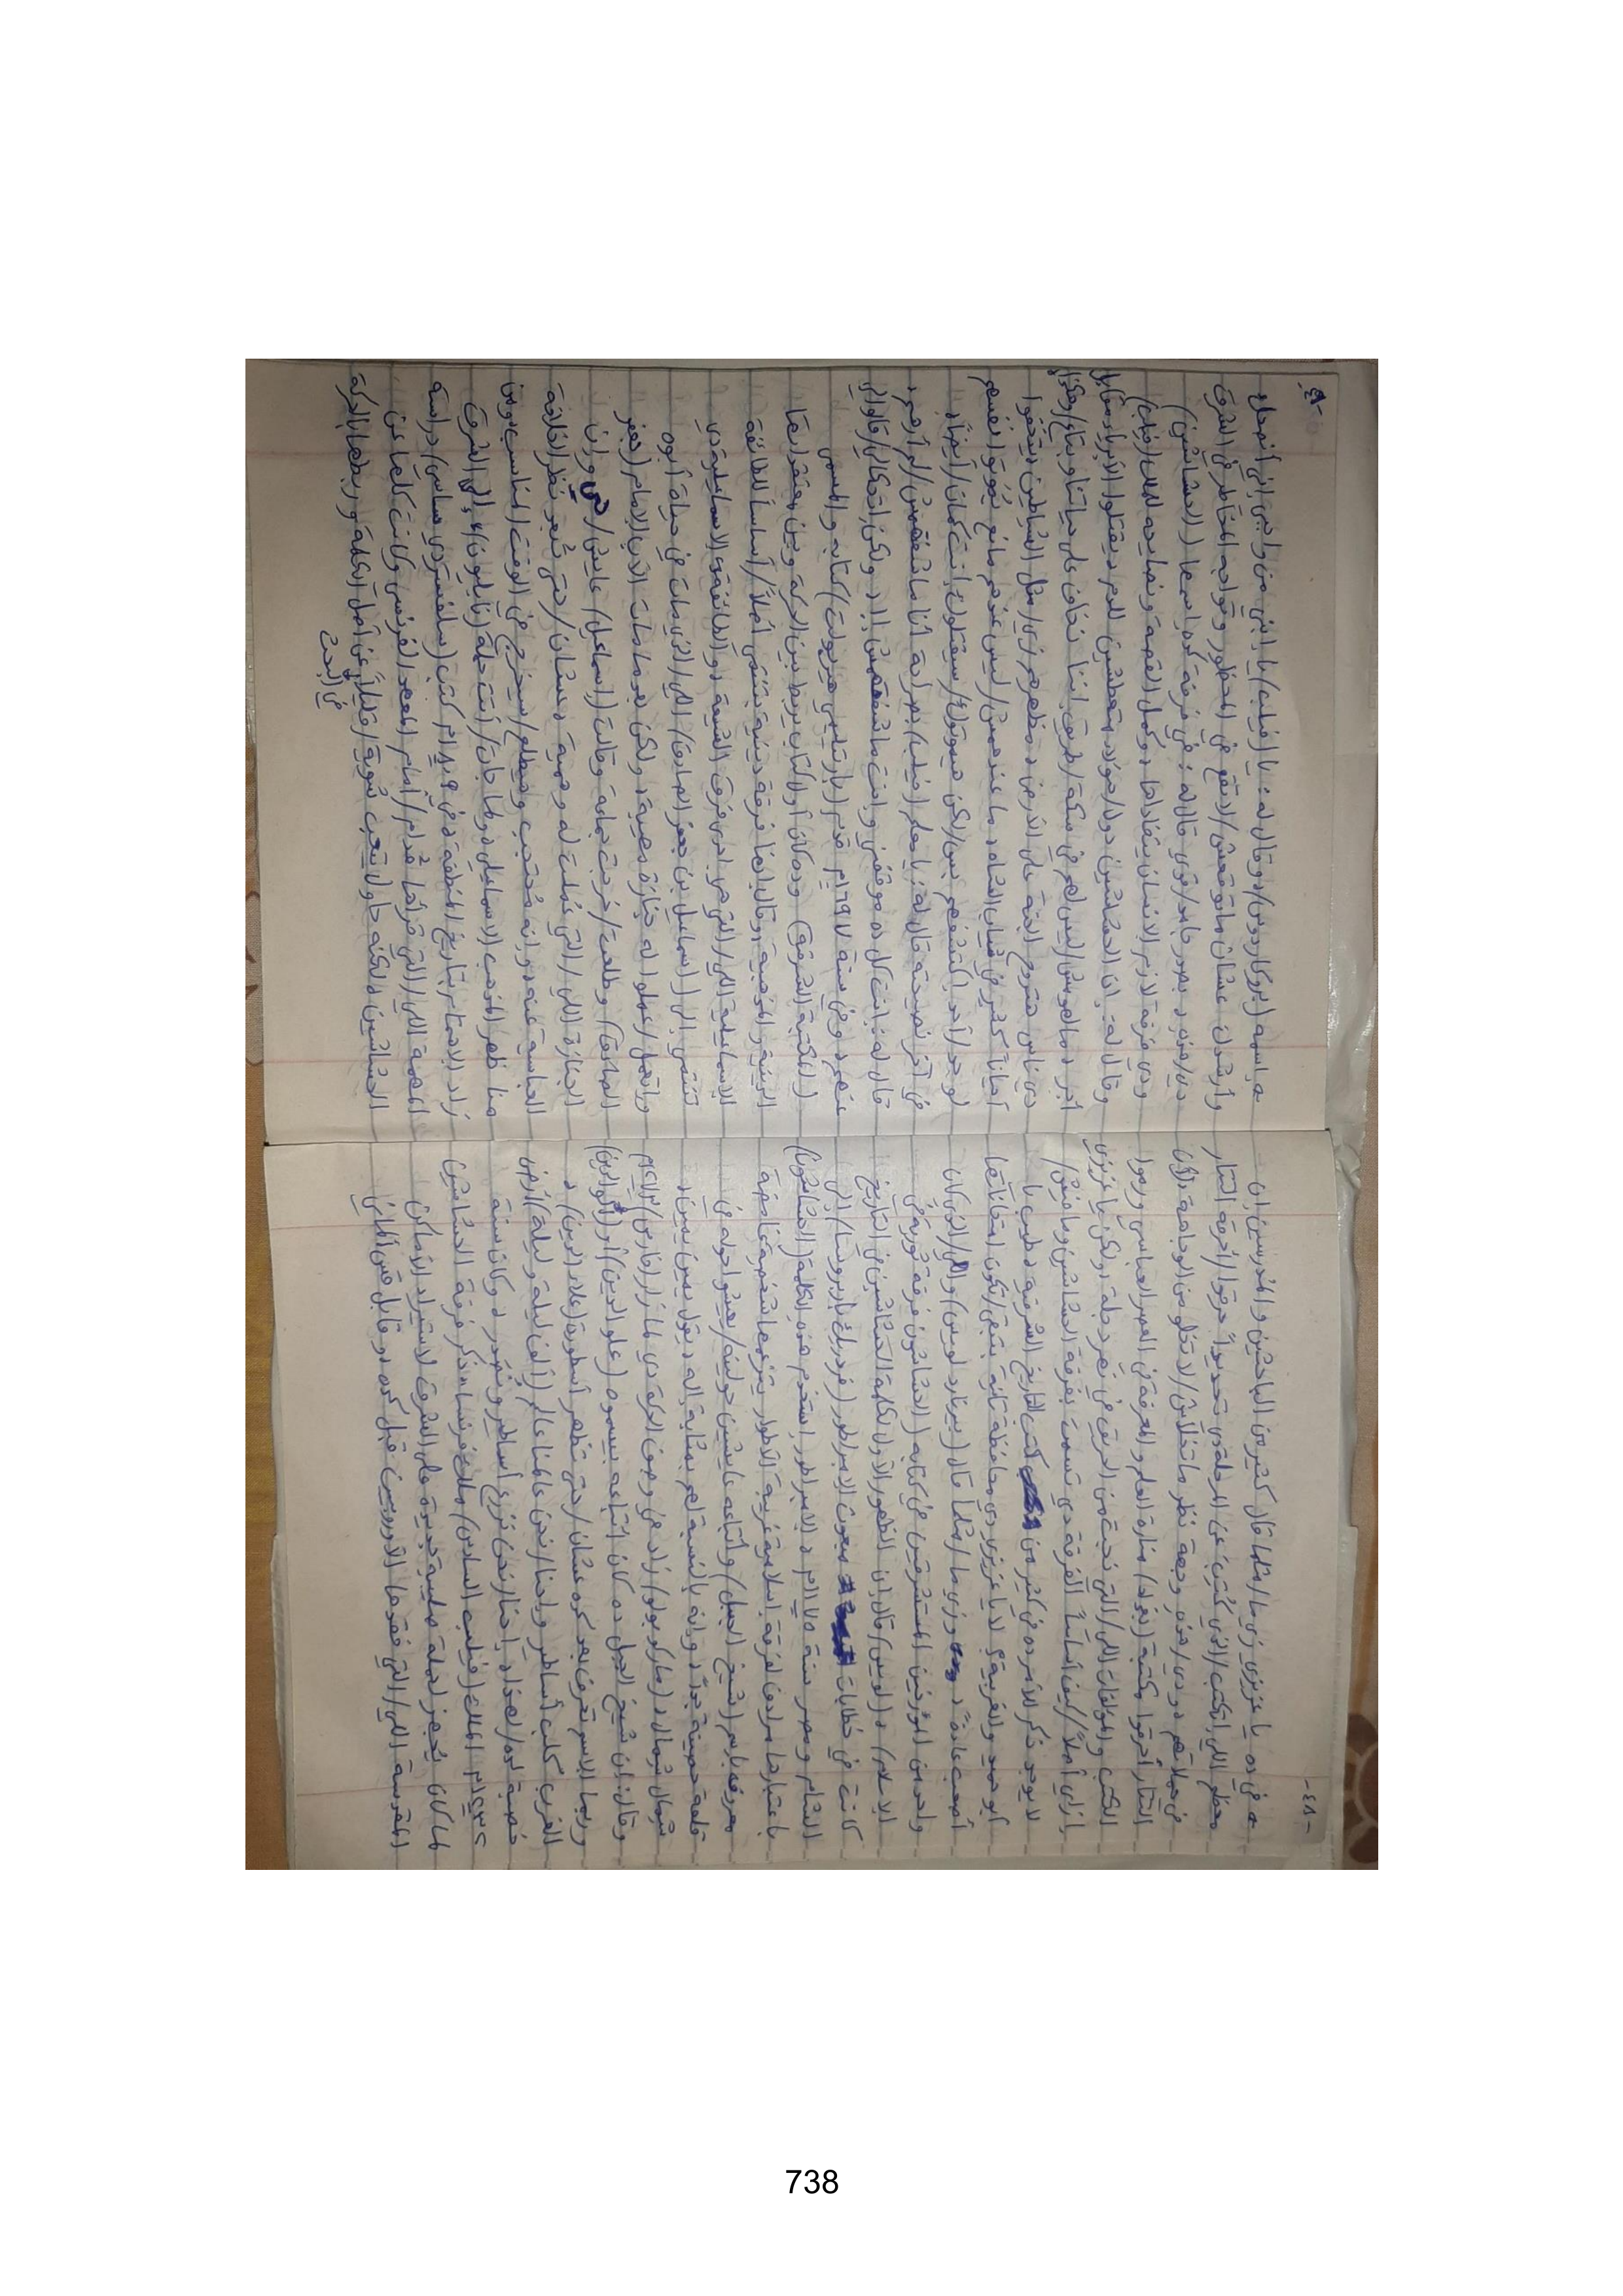 -٤٨-
هـ في ده يا عزيزي زي ما/مثلما قال كتير من الباحثين والمدرسين إن
معظم اللي اتكتب/الذي كُتِبَ عن المرحلة دي تحديداً حرقوا/أحرقه التتار
في حملاتهم ودي/هذه وجهة نظر ماتخلاش/لا تخلو من الوجاهة لأن
التتار أحرقوا مكتبة (بغداد) منارة العلم والمعرفة في العصر العباسي ورموا
الكتب والمؤلفات اللي/التي نجت من الحريق في نهر دجلة، ولكن يا عزيزي
إزاي أصلاً/كيف أساساً الفرقة دي تسمت بفرقة الحشاشين وما فيش/
لا يوجد ذكر للأمر ده في كتير من كتب التاريخ الشرقية، طيب يا
أبو حميد والغربية؟ لا يا عزيزي دي محافظة تانية بتبقى/تكون امتحاناتها
أصعب عادةً، وزي ما/مثلما قال (بيرنارد لويس) واللي/الذي كان
واحد من المؤرخين المستشرقين في كتابه (الحشاشون فرقة ثورية في
الإسلام)، (لويس) قال إن الظهور الأول لكلمة الحشاشين في التاريخ
كانت في خطابات مبعوث الإمبراطور (فردرك بربروسا) إلى
الشام ومصر سنة ١١٧٥م، الإمبراطور استخدم هذه الكلمة (الحشاشون)
باعتبارها مرادف لفرقة إسلامية غريبة الأطوار يتزعمها شخصية غامضة
معروفة باسم (شيخ الجبل) وأتباعه عايشين حولينه/يعيشوا حوله في
قلعة حصينة جداً، وانه بالنسبة لهم بمثابة إله، يقول يمين يمين،
شمال شمال، (ماركو بولو) زاد في وصف الحركة دي لما زار (فارس)
وقال: إن شيخ الجبل ده كان اتباعه بيسموه (علو الدين) أو (ألوالدين)
وربما الاسم تحرف بعد كده عشان/حتى تظهر أسطورة (علاء الدين)،
الغرب كاتب أساطير واحنا/نحن عالمنا عالم (ألف ليلة وليلة) أرض
خصبة لده/لهذا، إحنا/نحن نزرع أساطير ونصدر، وكان سنة
١٣٣٢م الملك (فيليب السادس) ملك فرنسا، ذكر فرقة الحشاشين
لما كان بيجهز لحملة صليبية جديدة على الشرق لاستيراد الأماكن
المقدسة اللي/التي فقدها الأوروبيين قبل كده، وقابل قس ألماني
-٤٩-
هـ اسمه (بروكاردوس) وقال له: يا (فيليب) يا ابني من واجبي إني أنصحك
وأرشدك عشان ماتوقعش/لا تقع في المحظور وتواجه المخاطر في الشرق
دي/هذه، بصدر جامد/قوي قال له: في فرقة كده اسمها (الحشاشين)
ودي فرقة لازم الإنسان يتفاداها، وكمل القصة ونصايحه للملك (فيليب)
وقال له: إن الحشاشين دول/هؤلاء متعطشين للدم، يقتلوا الأبرياء مقابل
أجر، مالهوش/ليس لهم في سكة/طريق إننا نخاف على حياتنا وبتاع/وهكذا
دي ناس هتروح الجنة على الأرض، مظهرهم زي/مثل الشياطين يتخفوا
أحياناً كتير في ثياب النساء، ماعندهمش/ليس عندهم مانع يموتوا نفسهم
لو حد/أحد اكتشفهم بس/لكن هيموتوك/سيقتلوك إنت كمان/أيضاً،
في آخر نصيحة قال له: يا معلم (فيليب) بصراحة أنا ماشفتهمش/لم أرهم،
قال له: إنت كل ده موقفني وإنت ماشفتهمش!!، ولكن اتحكالي/قالوا لي
عنهم، وفي سنة ١٦٩٧م قدم (بارتيليمي هيربولت) كتابه والمسمى
(المكتبة الشرقية) وده كان أول كتاب يربط بين الحركة وبين معتقداتها
الدينية والمذهبية، وقال إنها فرقة دينية بتنتمي أصلاً/أساساً للطائفة
الإسماعيلية اللي/التي هي إحدى فرق الشيعة، والطائفة الاسماعيلية دي
تنتمي إلى (اسماعيل بن جعفر الصادق) اللي/الذي مات في حياة أبوه
واتعمل/عملوا له جنازة مهيبة، ولكن بعد ما مات الأب الإمام (جعفر
الصادق) وطلعت/خرجت جماعة وقالت (اسماعيل) عايش/حي وإن
الجنازة اللي/التي عُملت له وهمية، عشان/حتى تبعد نظر الخلافة
العباسية عنه، وإنه مُحتجب وهيطلع/سيخرج في الوقت المناسب، ومن
هنا ظهر المذهب الإسماعيلي، ولما جات/أتت حملة (نابليون) إلى الشرق
زاد الاهتمام بتاريخ المنطقة، كتب (سلفستر دي ساسي) دراسة
المهمة اللي/التي قرأها قُدام/أمام المعهد الفرنسي وكانت كلها عن
الحشاشين، لكنه حاول يتعب شوية/قليلاً عن أصل الكلمة وربطها بالحركة
في البحث
738